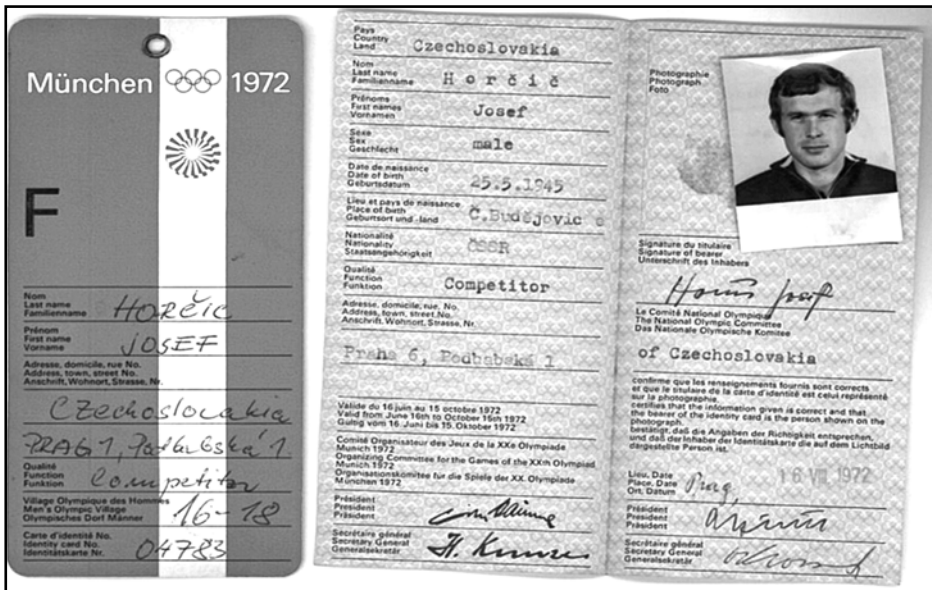 München 1972
F
Nom
Last name
Familienname HORČIC
Prénom
First name
Vorname JOSEF
Adresse, domicile, rue No.
Address, town, street No.
Anschrift, Wohnort, Strasse, Nr.
Czechoslovakia
PRAG 1, 1
Qualité
Function
Funktion Competitor
Village Olympique des Hommes
Men's Olympic Village
Olympisches Dorf Männer 16-18
Carte d'identité No.
Identity card No.
Identitätskarte Nr. 04783
Pays
Country
Land Czechoslovakia
Nom
Last name
Familienname Horčič
Prénoms
First names
Vornamen Josef
Sexe
Sex
Geschlecht male
Date de naissance
Date of birth
Geburtsdatum 25.5.1945
Lieu et pays de naissance
Place of birth
Geburtsort und -land Č.Budějovic e
Nationalité
Nationality
Staatsangehörigkeit ČSSR
Qualité
Function
Funktion Competitor
Adresse, domicile, rue, No.
Address, town, street, No.
Anschrift, Wohnort, Strasse, Nr.
Praha 6, Podbabská 1
Valide du 16 juin au 15 octobre 1972
Valid from June 16th to October 15th 1972
Gültig vom 16. Juni bis 15. Oktober 1972
Comité Organisateur des Jeux de la XXe Olympiade
Munich 1972
Organizing Committee for the Games of the XXth Olympiad
Munich 1972
Organisationskomitee für die Spiele der XX. Olympiade
München 1972
Président
President
Präsident
Secrétaire général
Secretary General
Generalsekretär H. Kunze
Photographie
Photograph
Foto
Signature du titulaire
Signature of bearer
Unterschrift des Inhabers
Josef
Le Comité National Olympique
The National Olympic Committee
Das Nationale Olympische Komitee
of Czechoslovakia
confirme que les renseignements fournis sont corrects
et que le titulaire de la carte d'identité est celui représenté
sur la photographie.
certifies that the information given is correct and that
the bearer of the identity card is the person shown on the
photograph.
bestätigt, daß die Angaben der Richtigkeit entsprechen,
und daß der Inhaber der Identitätskarte die auf dem Lichtbild
dargestellte Person ist.
Lieu, Date
Place, Date
Ort, Datum Prag, 16 VII. 1972
Président
President
Präsident
Secrétaire général
Secretary General
Generalsekretär